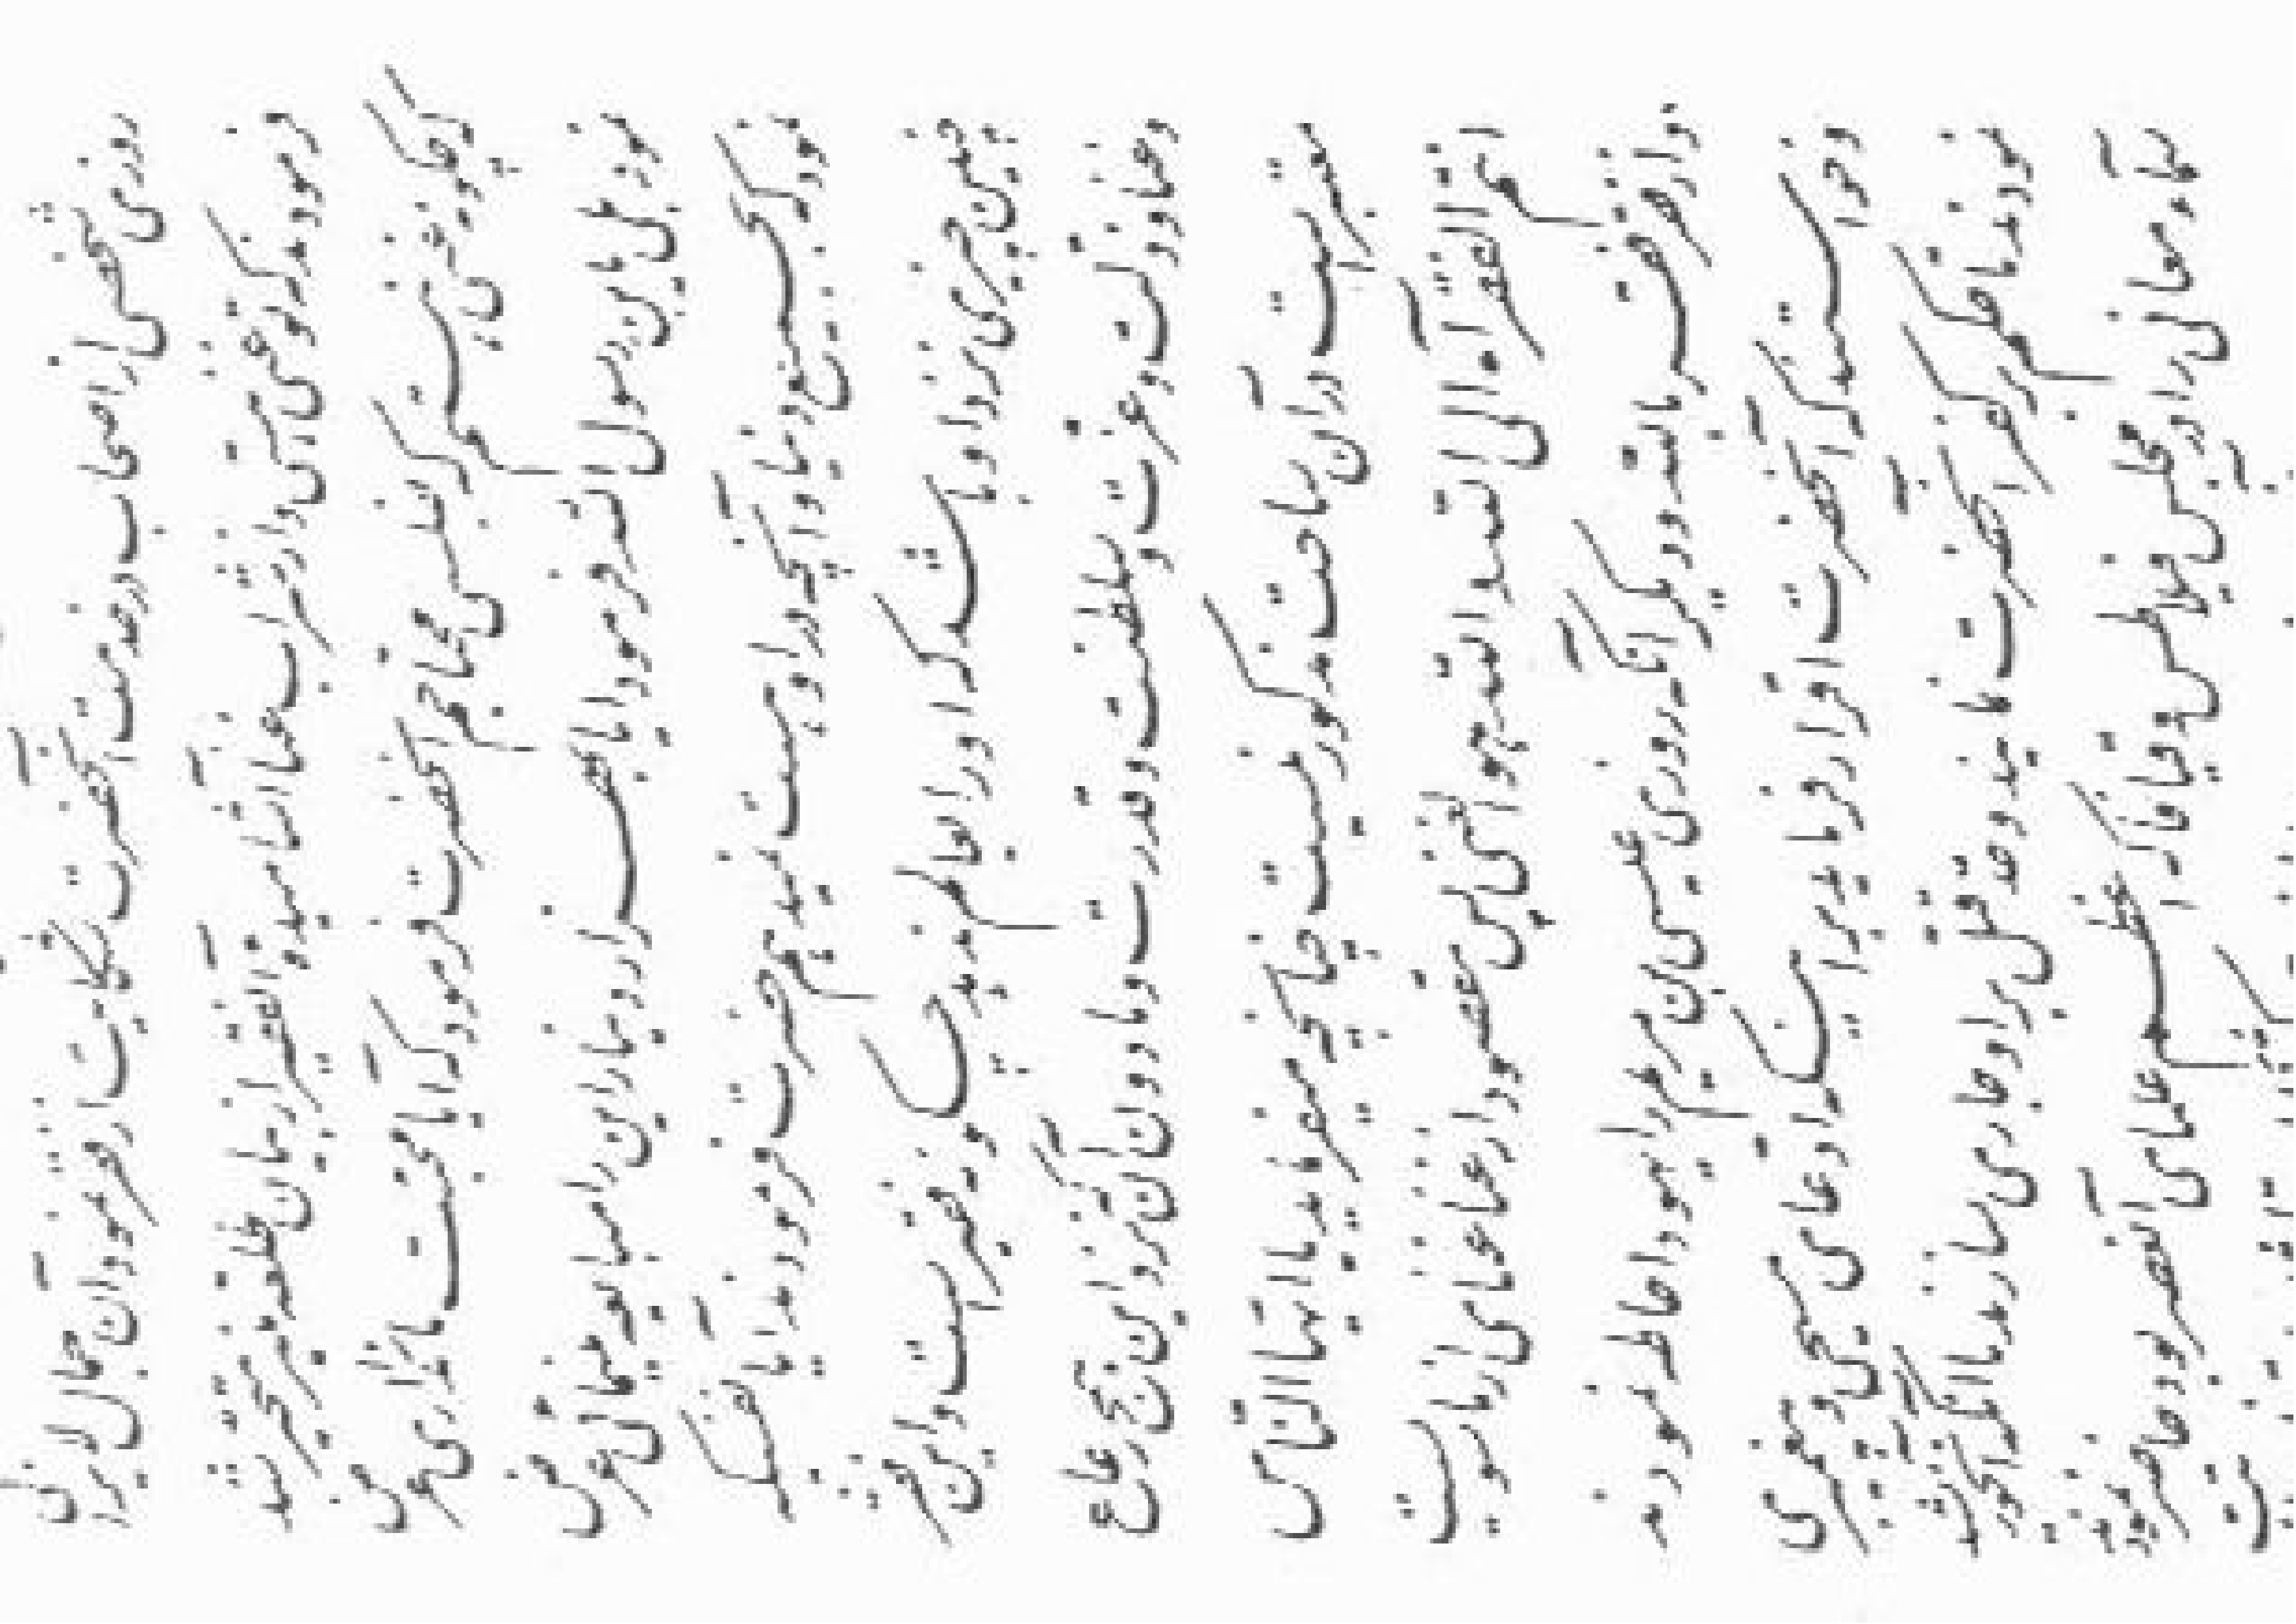 روزی شخصی از اصحاب در خدمت آنحضرت شکایت از فقر نمود آن جمال لایزالی
فرمودند که تو غنی هستی و از شراب غنا آشامیده آن فقیر از بیان طلعت منیر متحیر شد
که چگونه غنی هستم که بفلسی محتاجم آنحضرت فرمود که آیا محبت ما را نداری عرض
نمود بلی یابن رسول الله فرمود آیا بهزار دینار این را مبایعه مینمائی عرض
نمود که بجمیع دنیا و آنچه در اوست نمیدهم حضرت فرمودند آیا کسیکه
چنین چیزی نزد او باشد که او را بعالم ندهد چگونه فقیر است و این فقر
و غنا و ذلت و عزت و سلطنت و قدرت و ما دون آن که نزد این همج رعاع
معتبر است در آن ساحت مذکور نیست چنانچه میفرماید یا ایها الناس
انتم الفقراء الی الله و الله هو الغنی پس مقصود از غنا غنای از ما سویست
و از فقر فقر بالله و دیگر آنکه روزی عیسی بن مریم را یهود احاطه نمودند
و خواستند که آنحضرت اقرار فرماید بر اینکه ادعای مسیحی و پیغمبری
نمودند تا حکم کفر بر آنحضرت نمایند و حد قتل بر او جاری سازند تا آنکه آن خورشید
سماء معانی را در مجلس فیلاطس و قیافا که اعظم علمای آن عصر بود حاضر نمودند